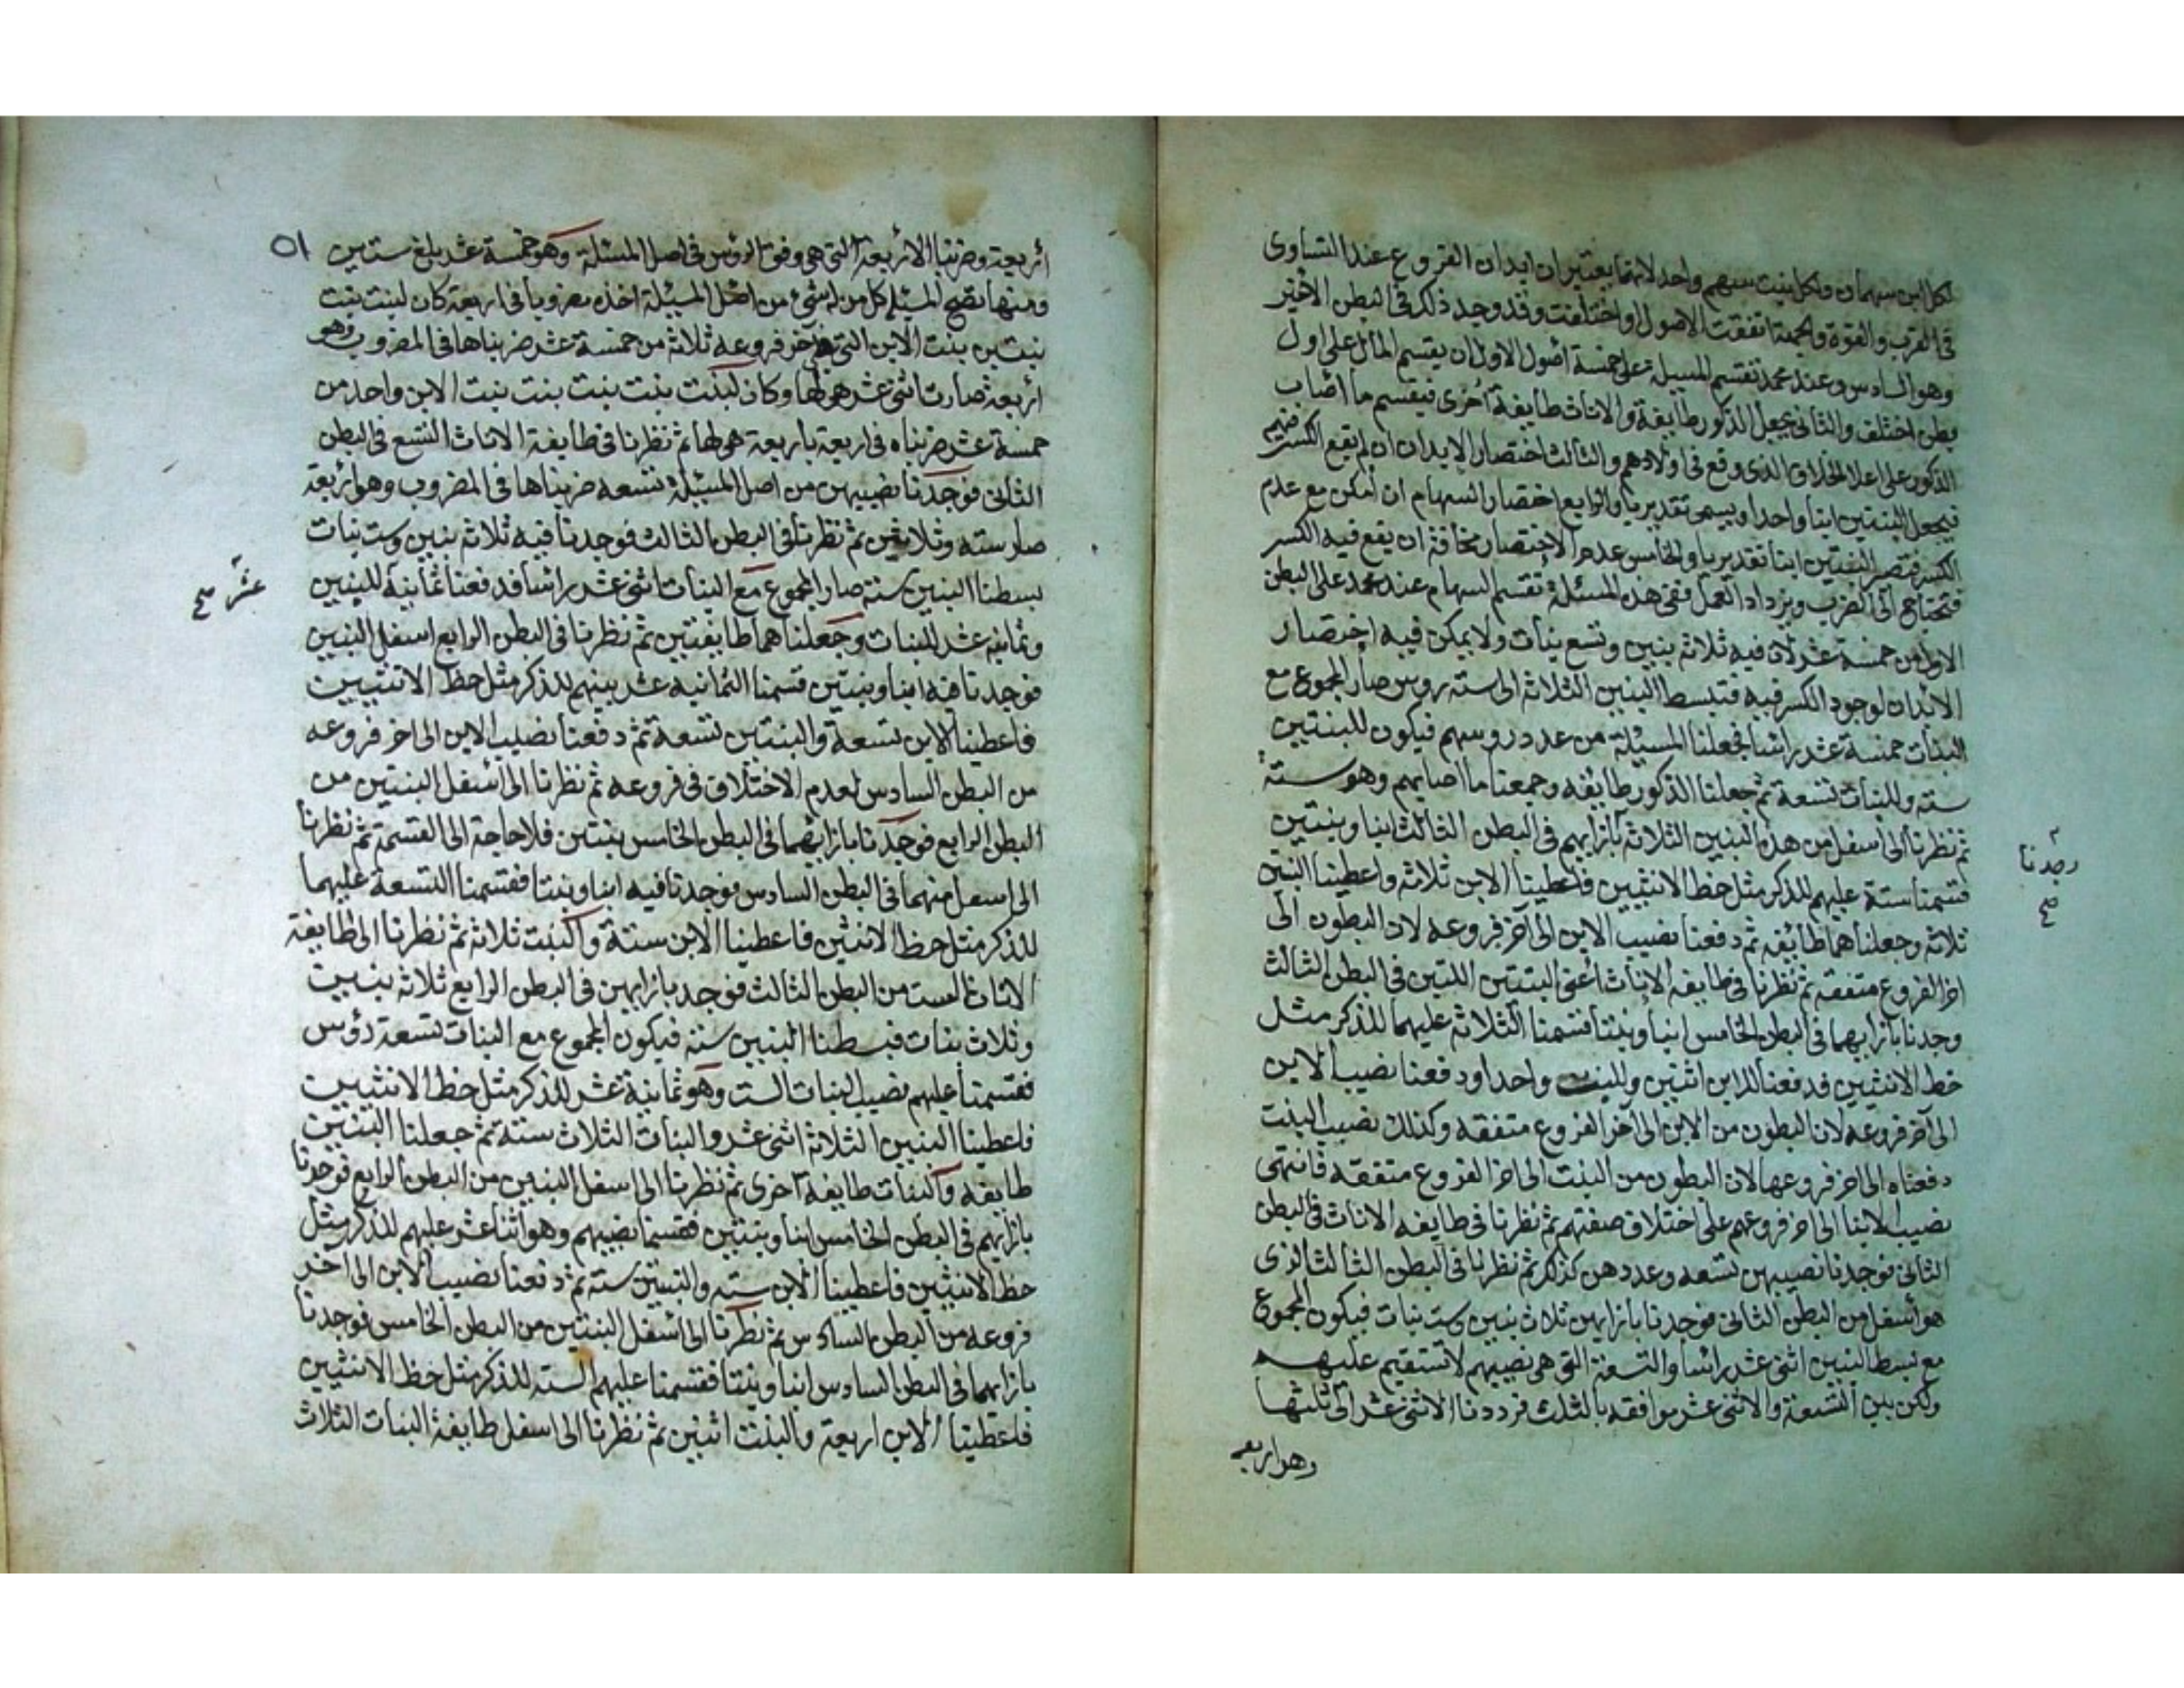 لكل ابن سهمان ولكل بنت سهم واحد لانهما يعتبران ابدان الفروع عند التساوى
فى القرب والقوة والجهة اتفقت الاصول او اختلفت وقد وجد ذلك فى البطن الاخير
وهو السادس وعند محمد تقسم المسيلة على خمسة اصول الاول ان يقسم المال على اول
بطن اختلف والثانى يجعل الذكور طايفة والاناث طايفة اخرى فيقسم ما اصاب
الذكور على اعلا الخلاف الذى وقع فى اولادهم والثالث اختصار الابدان ان لم يقع الكسر فيهم
فيجعل البنتين ابنا واحدا ويسمى تقديريا والرابع اختصار السهام ان امكن مع عدم
الكسر فتصير البنتين ابنا تقديريا والخامس عدم الاختصار مخافة ان يقع فيه الكسر
فتحتاج الى الضرب ويزداد العمل ففى هذه المسئلة تقسم السهام عند محمد على البطن
الاول من خمسة عشر لان فيه ثلاثة بنين وتسع بنات ولا يمكن فيه اختصار
الابدان لوجود الكسر فيه فتبسط البنين الثلاثة الى ستة روس صار المجموع مع
البنات خمسة عشر راسا فجعلنا المسيلة من عدد روسهم فيكون للبنتين
سته وللبنات تسعة ثم جعلنا الذكور طايفه وجمعنا ما اصابهم وهو ستة
ثم نظرنا الى اسفل من هذه البنين الثلاثة بازايهم فى البطن الثالث ابنا وبنتين
وجدنا
صح
فقسمنا ستة عليهم للذكر مثل حظ الانثيين فاعطينا الابن ثلاثه واعطينا البنتين
ثلاثه وجعلناهما طايفه ثم دفعنا نصيب الابن الى آخر فروعه لان البطون الى
اخر الفروع متفقه ثم نظرنا فى طايفه الاناث اعنى البنتين اللتين فى البطن الثالث
وجدنا بازايهما فى البطن الخامس ابنا وبنتا فقسمنا الثلاثة عليهما للذكر مثل
حظ الانثيين فدفعنا للابن اثنين وللبنت واحدا ودفعنا نصيب الابن
الى آخر فروعه لان البطون من الابن الى آخر الفروع متفقه وكذلك نصيب البنت
دفعناه الى اخر فروعها لان البطون من البنت الى اخر الفروع متفقه فانتهى
نصيب الابنا الى اخر فروعهم على اختلاف صفتهم ثم نظرنا فى طايفه الاناث فى البطن
الثانى فوجدنا نصيبهن تسعه وعددهن كذلك ثم نظرنا فى البطن الثالث الذى
هو اسفل من البطن الثانى فوجدنا بازايهن ثلاث بنين وست بنات فيكون المجموع
مع بسط البنين اثنى عشر راسا والتسعة التى هى نصيبهم لا تستقيم عليهم
ولكن بين التسعة والاثنى عشر موافقه بالثلث فرددنا الاثنى عشر الى ثلثها
وهو اربعه
٥١
اربعة وضربنا الاربعة التى هى وفق الرؤس فى اصل المسئلة وهو خمسة عشر بلغ ستين
ومنها تصح المسيلة كل من له شئ من اصل المسيلة اخذه مضروبا فى اربعة كان لبنت بنت
بنتين بنت الابن التى هى آخر فروعه ثلاثة من خمسة عشر ضربناها فى المضروب وهو
اربعة صارت اثنى عشر هو لها وكان لبنت بنت بنت بنت بنت الابن واحد من
خمسة عشر ضربناه فى اربعة باربعة هى لها ثم نظرنا فى طايفة الاناث التسع فى البطن
الثانى فوجدنا نصيبهن من اصل المسيلة تسعه ضربناها فى المضروب وهو اربعة
صار سته وثلاثين ثم نظرنا فى البطن الثالث فوجدنا فيه ثلاثة بنين وست بنات
بسطنا البنين ستة صار المجموع مع البنات اثنى عشر راسا فدفعنا ثمانية للبنين
عشر صح
وثمانيه عشر للبنات وجعلناهما طايفتين ثم نظرنا فى البطن الرابع اسفل البنين
فوجدنا فيه ابنا وبنتين قسمنا الثمانيه عشر بينهم للذكر مثل حظ الانثيين
فاعطينا الابن تسعة والبنتين تسعة ثم دفعنا نصيب الابن الى اخر فروعه
من البطن السادس لعدم الاختلاف فى فروعه ثم نظرنا الى اسفل البنتين من
البطن الرابع فوجدنا بازايهما فى البطن الخامس بنتين فلا حاجة الى القسمة ثم نظرنا
الى اسفل منهما فى البطن السادس فوجدنا فيه ابنا وبنتا فقسمنا التسعة عليهما
للذكر مثل حظ الانثيين فاعطينا الابن ستة والبنت ثلاثه ثم نظرنا الى طايفة
الاناث الست من البطن الثالث فوجد بازايهن فى البطن الرابع ثلاثة بنين
وثلاث بنات فبسطنا البنين سته فيكون المجموع مع البنات تسعة رؤس
فقسمنا عليهم نصيب البنات الست وهو ثمانية عشر للذكر مثل حظ الانثيين
فاعطينا البنين الثلاثة اثنى عشر والبنات الثلاث ستة ثم جعلنا البنين
طايفه والبنات طايفه اخرى ثم نظرنا الى اسفل البنين من البطن الرابع فوجدنا
بازايهم فى البطن الخامس ابنا وبنتين فقسمنا نصيبهم وهو اثنا عشر عليهم للذكر مثل
حظ الانثيين فاعطينا الابن سته والبنتين سته ثم دفعنا نصيب الابن الى آخر
فروعه من البطن السادس ثم نظرنا الى اسفل البنتين من البطن الخامس فوجدنا
بازايهما فى البطن السادس ابنا وبنتا فقسمنا عليهم الستة للذكر مثل حظ الانثيين
فاعطينا الابن اربعة والبنت اثنين ثم نظرنا الى اسفل طايفة البنات الثلاث